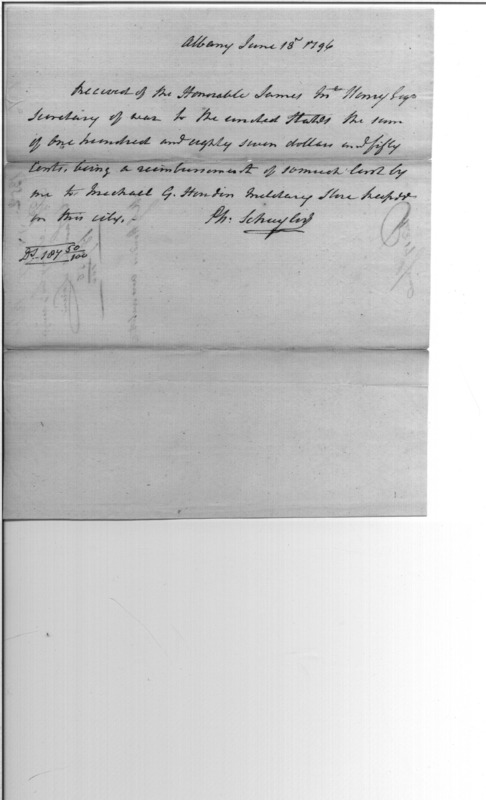 Albany June 13th 1796
Received of the Honorable James McHenry Esqr
Secretary of war to the united States the sum
of One hundred and eighty seven dollars and fifty
Cents, being a reimbursement of somuch lent by
me to Michael G. Houdin Military Store keeper
in this city.
Ph: Schuyler
Ds 187 50/100